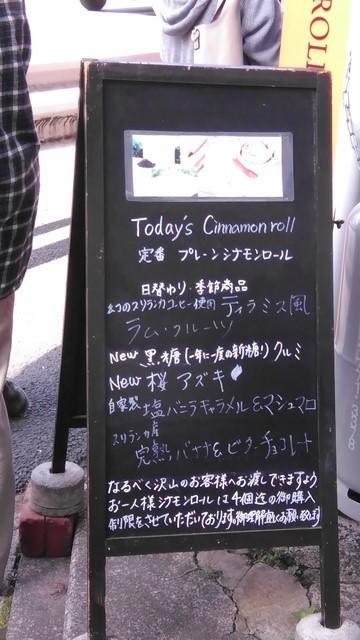 ROLL
Today's Cinnamon roll
定番 プレーンシナモンロール
日替わり・季節商品
スリランカコーヒー使用 ティラミス風
ラム・フルーツ
New 黒糖(一年に一度の新糖!) クルミ
New 桜 アズキ
自家製 塩バニラキャラメル&マシュマロ
スリランカ産
完熟バナナ&ビターチョコレート
なるべく沢山のお客様へお渡しできますよう
お一人様シナモンロールは4個迄の御購入
制限をさせていただいております。御理解宜しくお願い致します